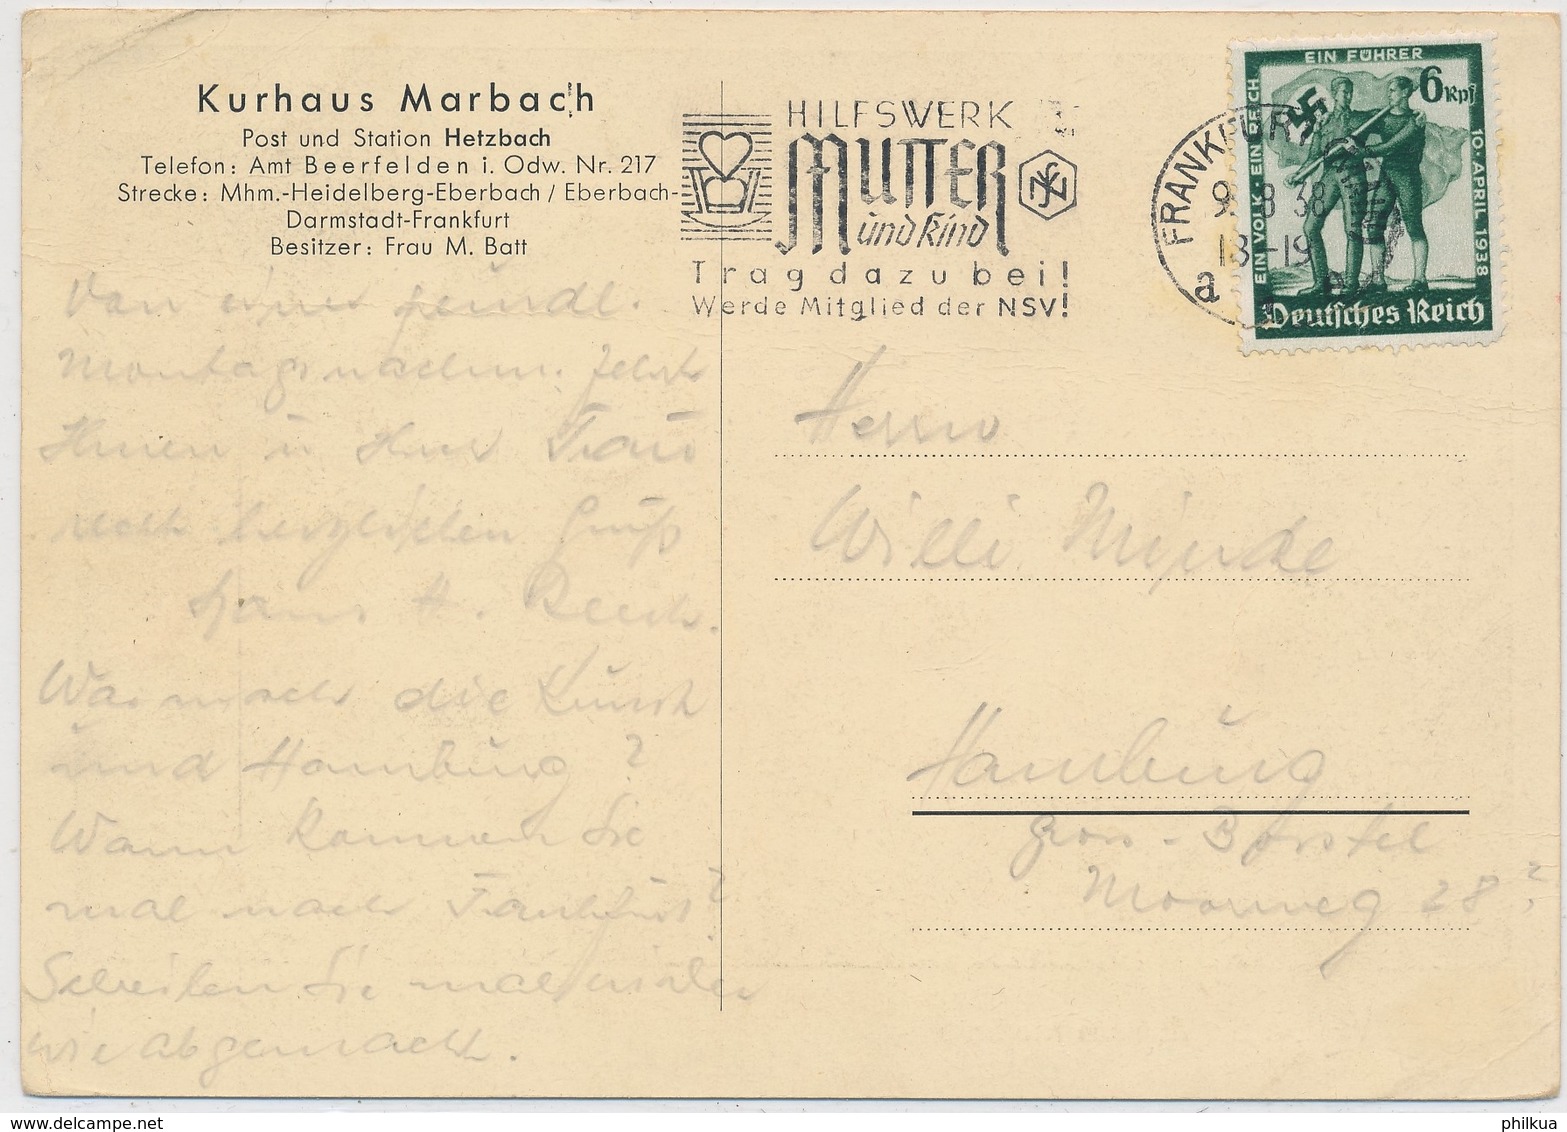 Kurhaus Marbach
Post und Station Hetzbach
Telefon: Amt Beerfelden i. Odw. Nr. 217
Strecke: Mhm.-Heidelberg-Eberbach / Eberbach-
Darmstadt-Frankfurt
Besitzer: Frau M. Batt
HILFSWERK
MUTTER
und Kind
Trag dazu bei!
Werde Mitglied der NSV!
FRANKFURT
9. 8 38
18-19
a
EIN VOLK · EIN REICH
EIN FÜHRER
10. APRIL 1938
6 Rpf
Deutsches Reich
Von einer
Montagsnachm.
Ihnen u Ihrer Frau
recht herzlichen Gruß
Hans H.
Was macht die Kunst
und Hamburg?
Wann kommen Sie
mal nach Frankfurt?
Schreiben Sie mal wieder
wie abgemacht.
Herrn
Willi
Hamburg
Gross-Borstel
Moorweg 28?
philkua